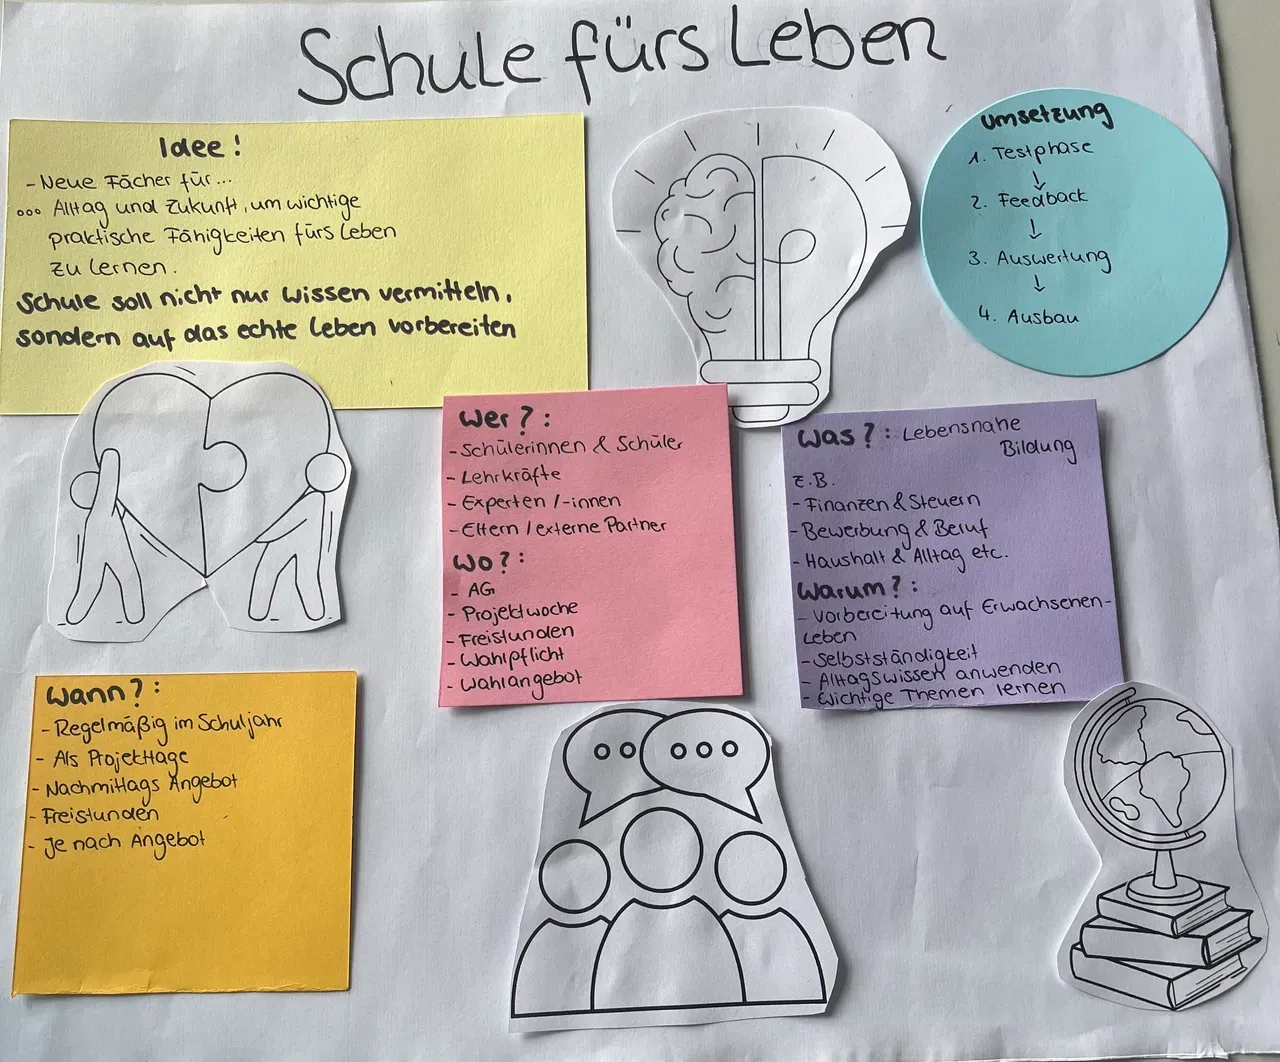 Schule fürs Leben
Idee!
- Neue Fächer für...
... Alltag und Zukunft, um wichtige
praktische Fähigkeiten fürs Leben
zu lernen.
Schule soll nicht nur Wissen vermitteln,
sondern auf das echte Leben vorbereiten
Umsetzung
1. Testphase
↓
2. Feedback
↓
3. Auswertung
↓
4. Ausbau
Wer?:
- Schülerinnen & Schüler
- Lehrkräfte
- Experten /-innen
- Eltern / externe Partner
Wo?:
- AG
- Projektwoche
- Freistunden
- Wahlpflicht
- Wahlangebot
Was?: Lebensnahe
Bildung
z.B.
- Finanzen & Steuern
- Bewerbung & Beruf
- Haushalt & Alltag etc.
Warum?:
- Vorbereitung auf Erwachsenen-
Leben
- Selbstständigkeit
- Alltagswissen anwenden
- Wichtige Themen lernen
Wann?:
- Regelmäßig im Schuljahr
- Als Projekttage
- Nachmittags Angebot
- Freistunden
- Je nach Angebot